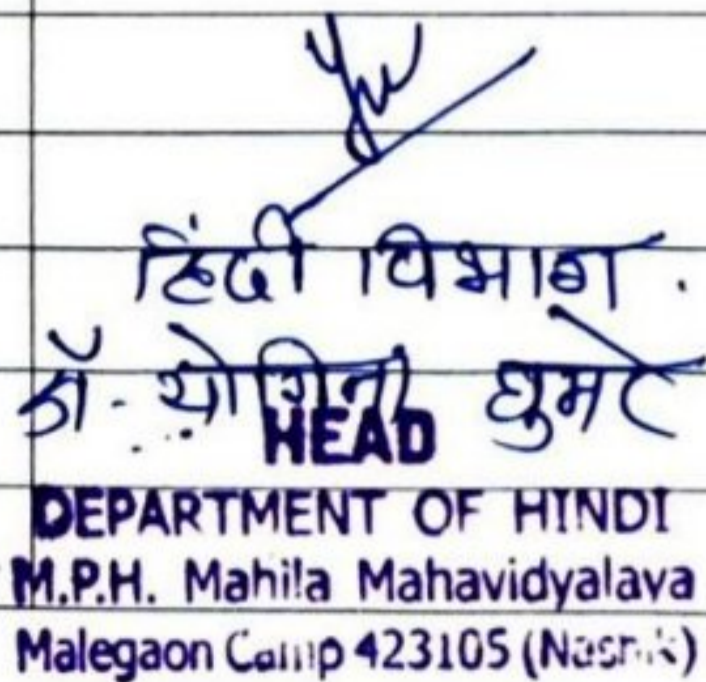 हिंदी विभाग.
डॉ. योगिनी घुमरे
HEAD
DEPARTMENT OF HINDI
M.P.H. Mahila Mahavidyalaya
Malegaon Camp 423105 (Nasik)